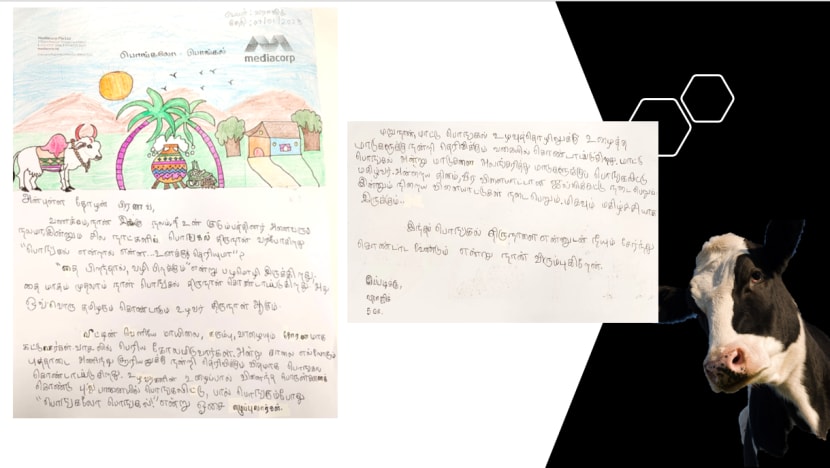 தேதி: 09/01/2023
mediacorp
பொங்கலோ - பொங்கல்
அன்புள்ள தோழன் பிரணவ,
வணக்கம், நான் நலம், நீ உன் குடும்பத்தினர் அனைவரும்
நலமா, இன்னும் சில நாட்களில் பொங்கல் திருநாள் வரப்போகிறது
"பொங்கல் என்றால் என்ன...உனக்குத் தெரியுமா"?
"தை பிறந்தால், வழி பிறக்கும்" என்று பழமொழி இருக்கிறது,
தை மாதம் முதலாம் நாள் பொங்கல் திருநாள் கொண்டாடப்படுகிறது. அது
ஒவ்வொரு தமிழரும் கொண்டாடும் உழவர் திருநாள் ஆகும்.
வீட்டின் வெளியே மாவிலை, கரும்பு, வாழையும் தோரணமாக
கட்டுவார்கள். வாசலில் பெரிய கோலமிடுவார்கள். அன்று காலை எல்லோரும்
புத்தாடை அணிந்து சூரியனுக்கு நன்றி தெரிவிக்கும் விதமாக பொங்கல்
கொண்டாடப்படுகிறது. உழவர்களின் உழைப்பால் விளைந்த பொருள்களைக்
கொண்டு புதுப்பானையில் பொங்கலிட்டு, பால் பொங்கும்போது
"பொங்கலோ பொங்கல்" என்று ஓசை எழுப்புவார்கள்.
மறுநாள் மாட்டு பொங்கல் உழவுத்தொழிலுக்கு உழைத்த
மாடுகளுக்கு நன்றி தெரிவிக்கும் வகையில் கொண்டாடப்படுகிறது. மாட்டு
பொங்கல் அன்று மாடுகளை அலங்கரித்து மாடுகளுக்குப் பொங்கலிட்டு
மகிழ்வர். அன்றைய தினம், வீர விளையாட்டான ஜல்லிக்கட்டு நடைபெறும்
இன்னும் நிறைய விளையாட்டுகள் நடைபெறும். மிகவும் மகிழ்ச்சியாக
இருக்கும்.
இந்தப் பொங்கல் திருநாளை என்னுடன் நீயும் சேர்ந்து
கொண்டாட வேண்டும் என்று நான் விரும்புகிறேன்.
இப்படிக்கு,